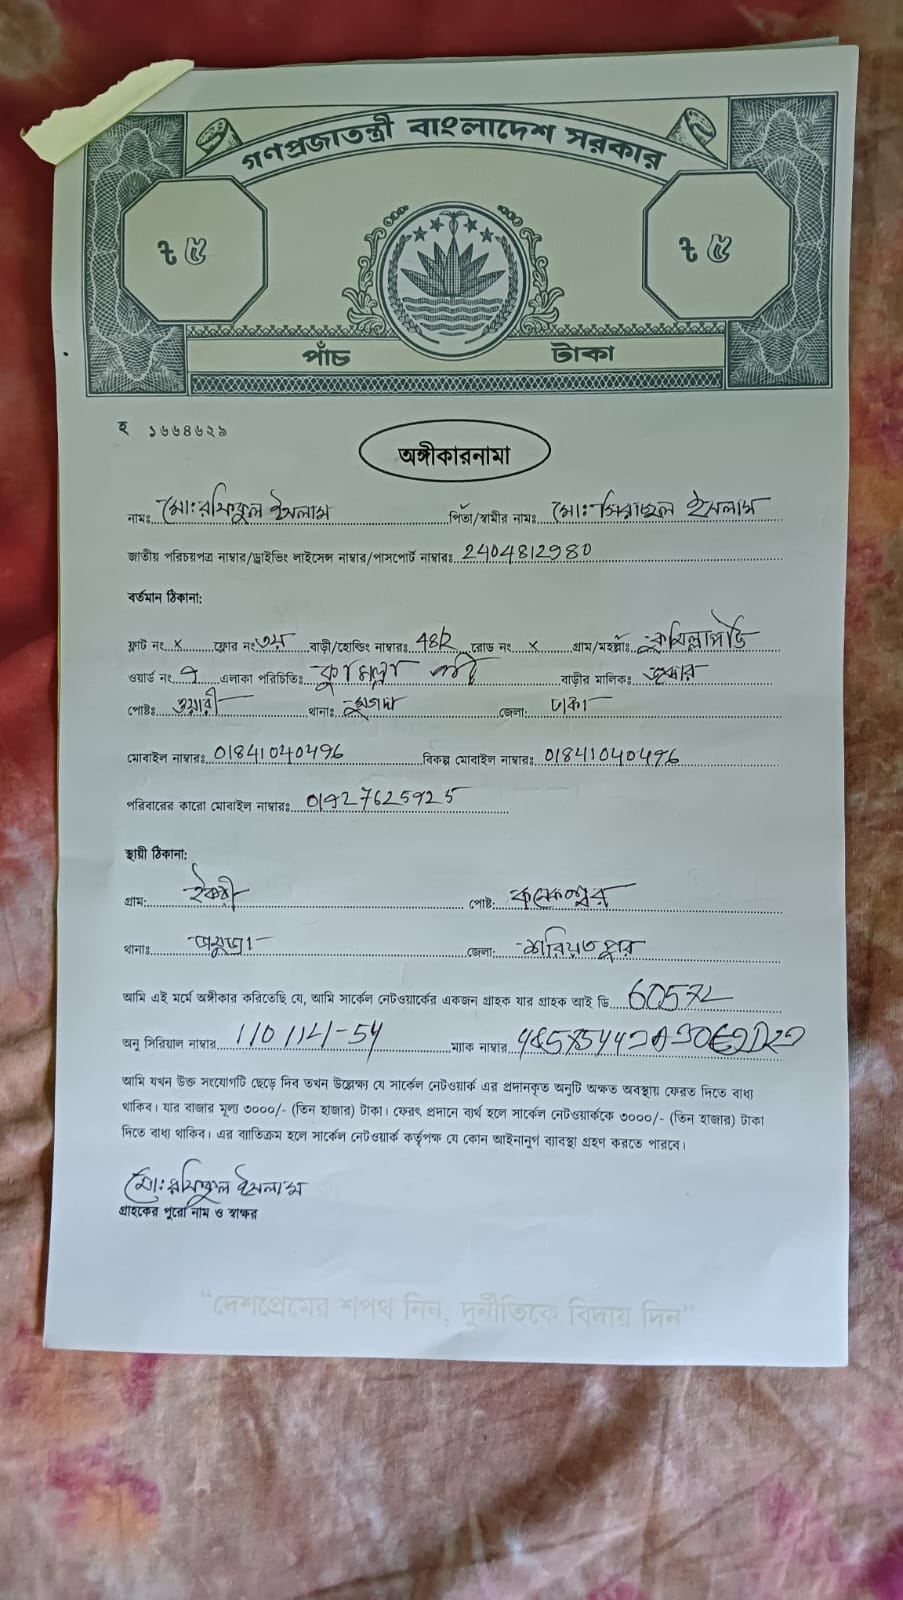 গণপ্রজাতন্ত্রী বাংলাদেশ সরকার
৳ ৫ ৳ ৫
পাঁচ টাকা
হ ১৬৬৪৬২৯
অঙ্গীকারনামা
নামঃ মোঃ রফিকুল ইসলাম পিতা/স্বামীর নামঃ মোঃ সিরাজুল ইসলাম
জাতীয় পরিচয়পত্র নাম্বার/ড্রাইভিং লাইসেন্স নাম্বার/পাসপোর্ট নাম্বারঃ 2404812980
বর্তমান ঠিকানা:
ফ্লাট নং x ফ্লোর নংঃ ৩য় বাড়ী/হোল্ডিং নাম্বারঃ রোড নং x গ্রাম/মহল্লাঃ
ওয়ার্ড নং ৭ এলাকা পরিচিতিঃ কুমিল্লা বাড়ীর মালিকঃ
পোষ্টঃ ওয়ারী থানাঃ মুগদা জেলাঃ ঢাকা
মোবাইল নাম্বারঃ 01841040496 বিকল্প মোবাইল নাম্বারঃ 01841040496
পরিবারের কারো মোবাইল নাম্বারঃ 01927625925
স্থায়ী ঠিকানা:
গ্রাম: পোষ্ট: কনেশ্বর
থানাঃ জেলা: শরিয়তপুর
আমি এই মর্মে অঙ্গীকার করিতেছি যে, আমি সার্কেল নেটওয়ার্কের একজন গ্রাহক যার গ্রাহক আই ডি
অনু সিরিয়াল নাম্বার ম্যাক নাম্বার
আমি যখন উক্ত সংযোগটি ছেড়ে দিব তখন উল্লেক্ষ্য যে সার্কেল নেটওয়ার্ক এর প্রদানকৃত অনুটি অক্ষত অবস্থায় ফেরত দিতে বাধ্য
থাকিব। যার বাজার মূল্য ৩০০০/- (তিন হাজার) টাকা। ফেরৎ প্রদানে ব্যর্থ হলে সার্কেল নেটওয়ার্ককে ৩০০০/- (তিন হাজার) টাকা
দিতে বাধ্য থাকিব। এর ব্যাতিক্রম হলে সার্কেল নেটওয়ার্ক কর্তৃপক্ষ যে কোন আইনানুগ ব্যাবস্থা গ্রহণ করতে পারবে।
মোঃ রফিকুল ইসলাম
গ্রাহকের পুরো নাম ও স্বাক্ষর
"দেশপ্রেমের শপথ নিন, দুর্নীতিকে বিদায় দিন"